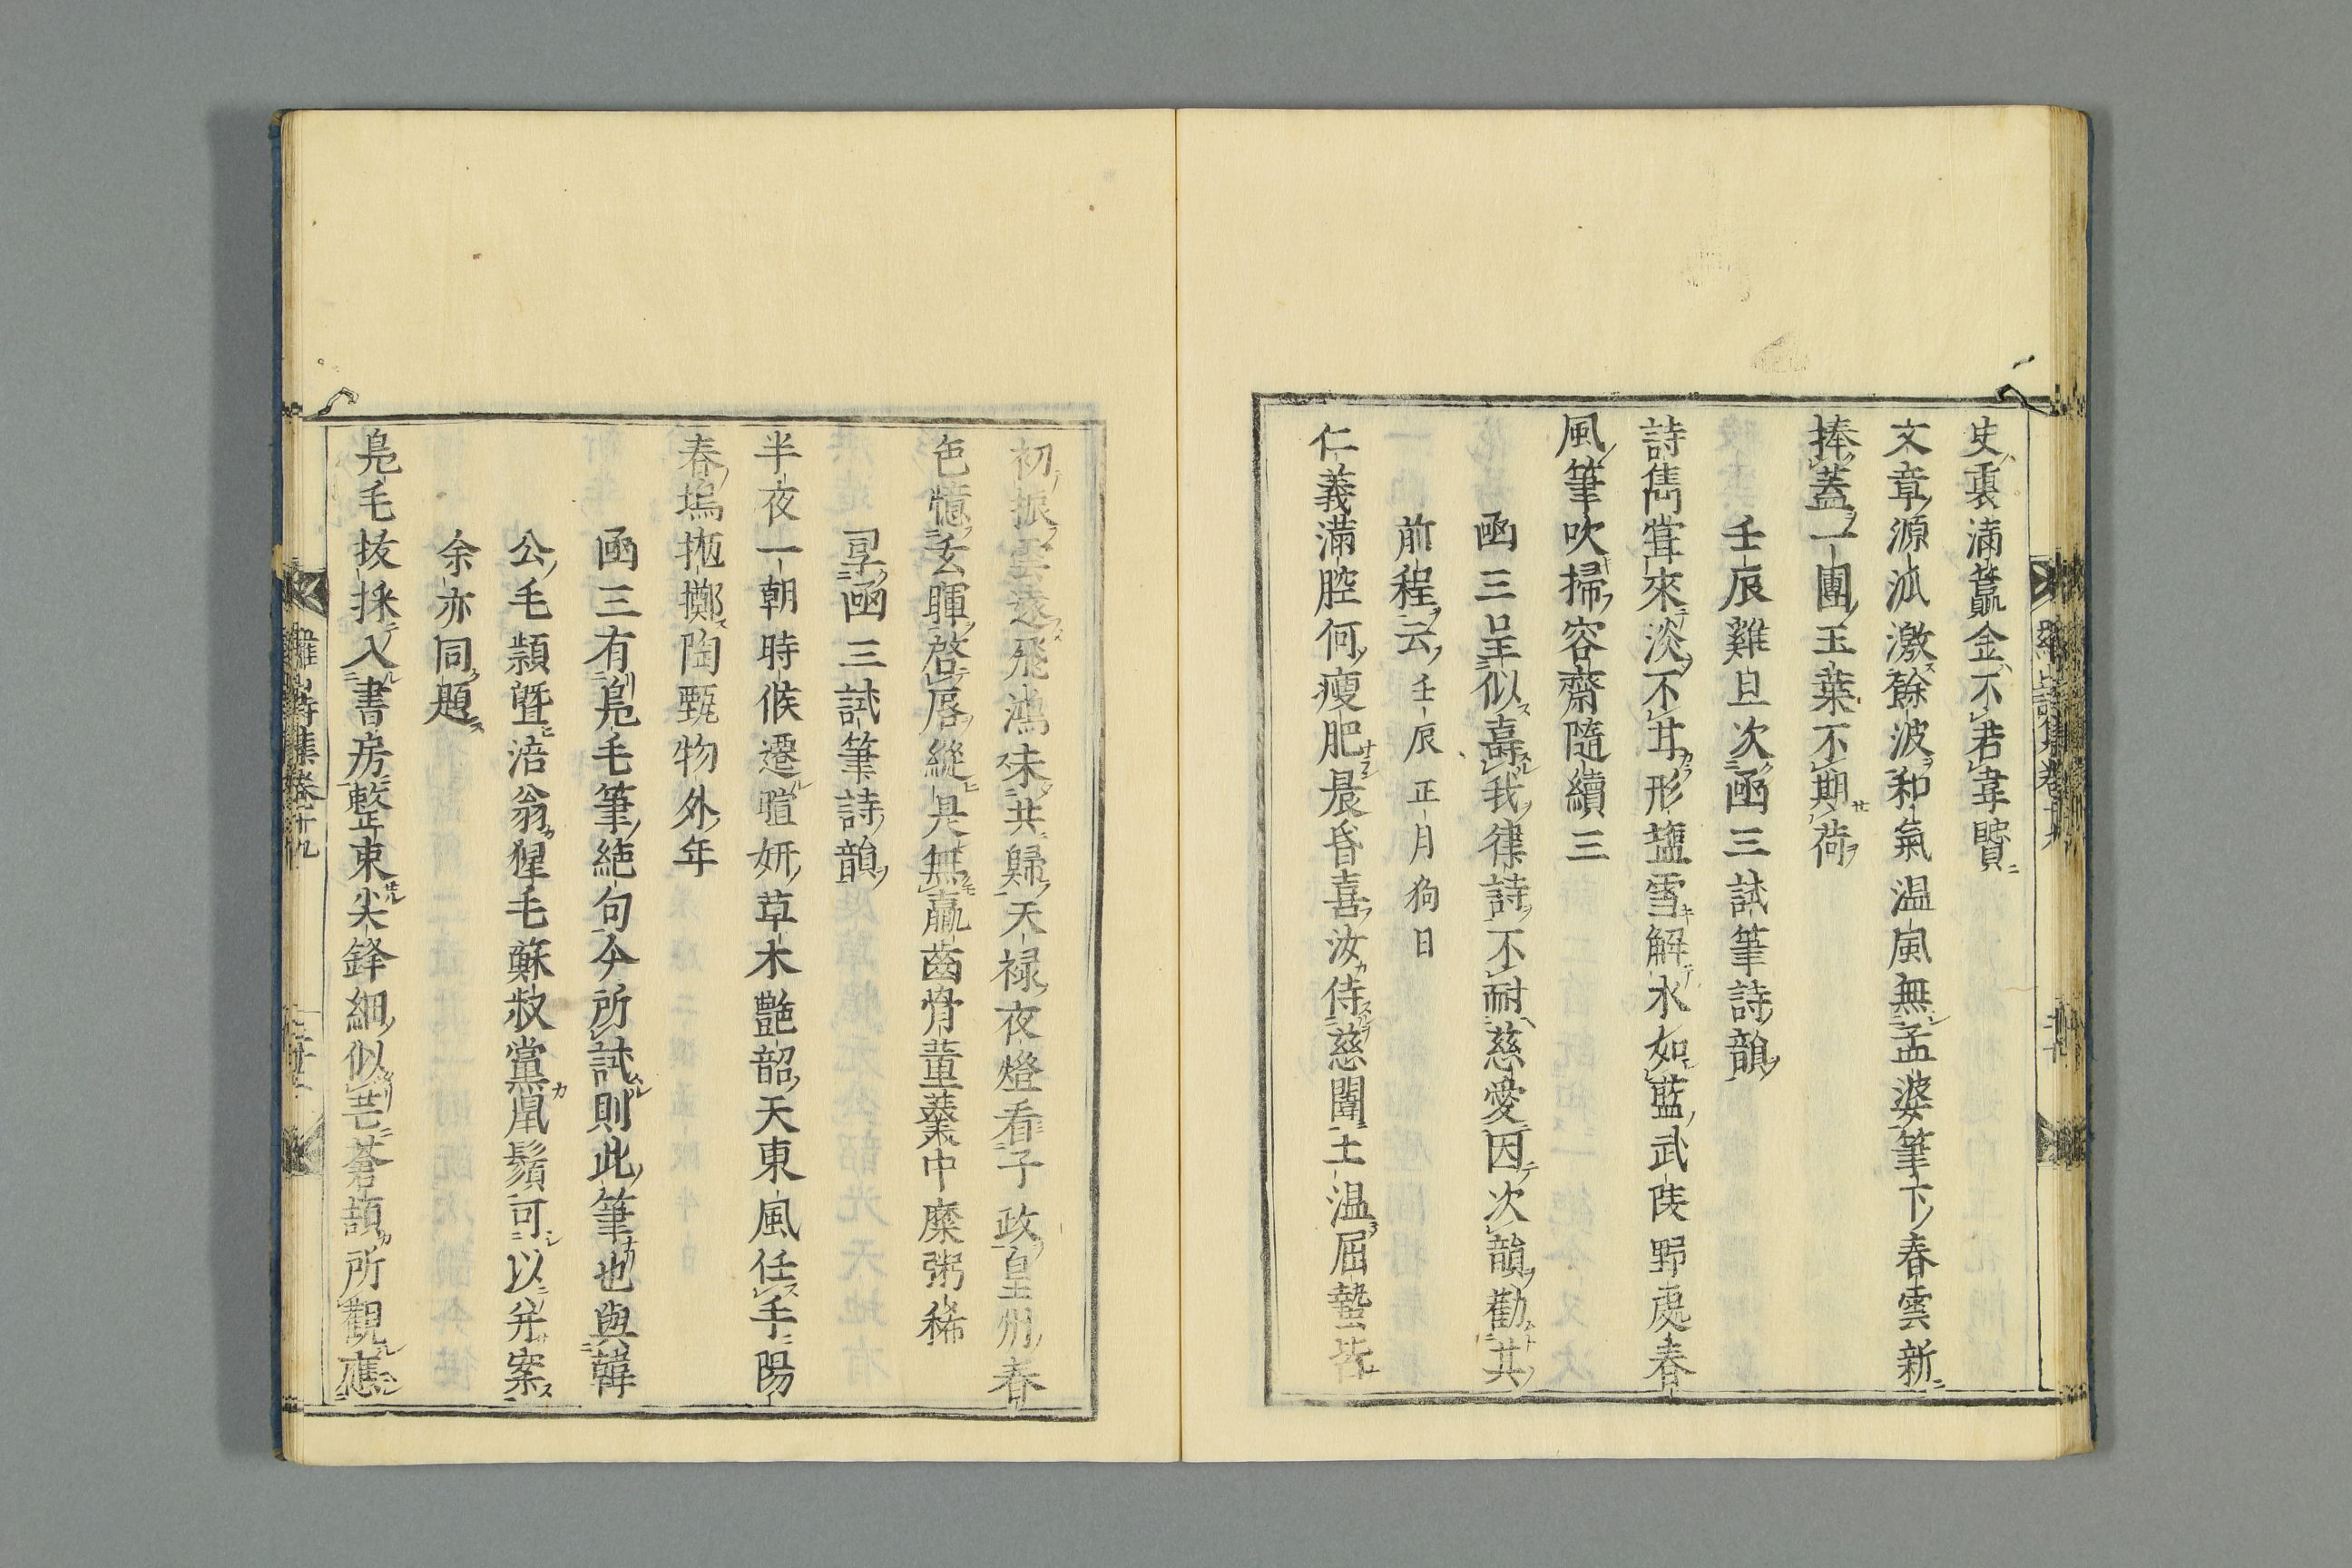 史裏滿籝金不若韋賢
文章源流激餘波和氣温風無孟婆筆下春雲新
捧蓋一團玉葉不期荷
壬辰雞旦次函三試筆詩韻
詩雋甞來淡不甘形盬雪解水如藍武陵野處春
風筆吹掃容齋隨續三
函三呈似壽我律詩不耐慈愛因次韻勸其
前程云壬辰正月狗日
仁義滿腔何瘦肥晨昏喜汝侍慈闈土温屈蟄皆
初振雲遠飛鴻未共歸天禄夜燈看子政皇州春
色憶玄暉啓唇縱是無羸齒骨董羹中糜粥稀
再函三試筆詩韻
半夜一朝時候遷暄妍草木艶韶天東風任手陽
春塢拖擲陶甄物外年
函三有鳧毛筆絶句今所試則此筆也與韓
公毛穎曁涪翁猩毛蘇叔黨鼠鬚可以并案
余亦同題
鳧毛抜採入書房整束尖鋒細似芒蒼頡所觀應
羅山詩集卷十九